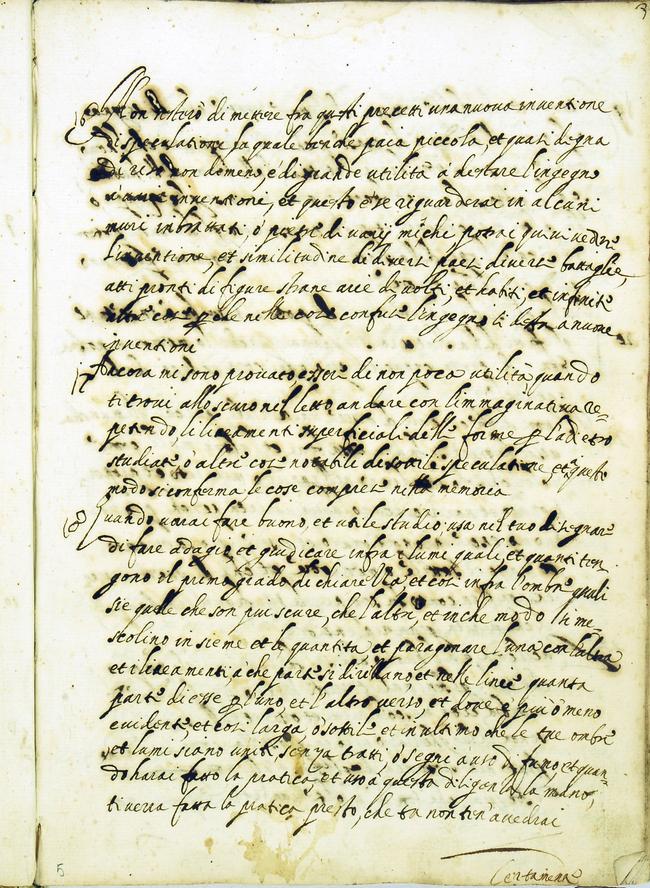 3
16 Non resterò di mettere fra questi precetti una nuova inventione
di speculatione la quale benche paia piccola, et quasi degna
di riso non dimeno, è di grande utilità a destare l'ingegno
a varie inventioni, et questo è se riguarderai in alcuni
muri imbrattati, ò pietre di varij mischi potrai quivi vedere
l'inventione, et similitudine di diversi paesi diverse battaglie,
atti pronti di figure strane arie di volti, et habiti, et infinite
altre cose perche nelle cose confuse l'ingegno si desta a nuove
inventioni
17 Ancora mi sono provato esser di non poca utilità, quando
ti trovi allo scuro nel letto, andare con l'immaginativa re=
petendo, li lineamenti superficiali delle forme per l'adietro
studiate, ò altre cose notabili di sottile speculatione, et questo
modo si conferma le cose comprese nella memoria
18 Quando vorai fare buono, et utile studio, usa nel tuo disegnare
di fare adagio, et giudicare infra i lumi quali, et quanti ten
gono il primo grado di chiarezza, et cosi infra l'ombre quali
sie quelle che son piu scure, che l'altre, et in che modo si me
scolino insieme et le quantita, et paragonare l'una con l'altra
et i lineamenti a che parte si dirizzano, et nelle linee quanta
parte di esse per l'uno, et l'altro verso, et dove è piu ò meno
evidente, et cosi larga, ò sottile et in ultimo che le tue ombre
et lumi siano uniti senza tratti, ò segni a uso di fumo, et quan
do harai fatto la pratica, et uso a questa diligenza la mano,
ti verra fatta la pratica presto, che tu non ten'avedrai
Certamente
5